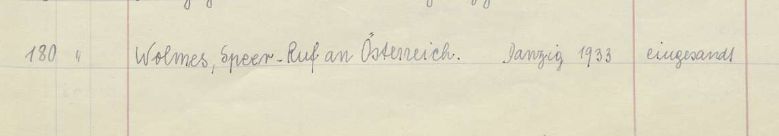 180 " Wolmes, Speer-Ruf an Österreich. Danzig 1933 eingesandt